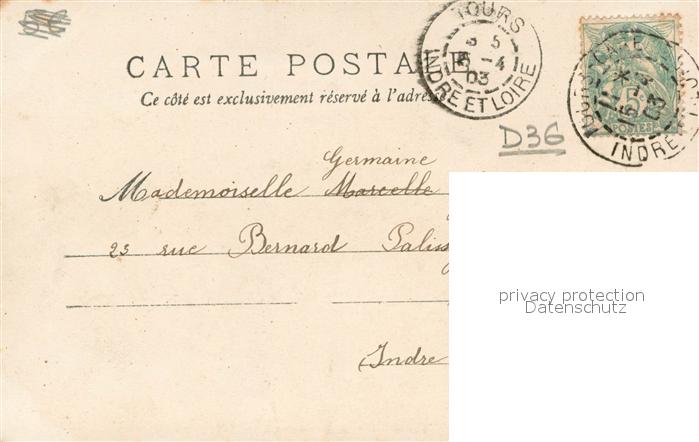 CARTE POSTALE
Ce côté est exclusivement réservé à l'adresse
TOURS
5
-4
03
INDRE ET LOIRE
INDRE
POSTES
D36
Germaine
Mademoiselle Marcelle
23 rue Bernard
Indre
privacy protection
Datenschutz